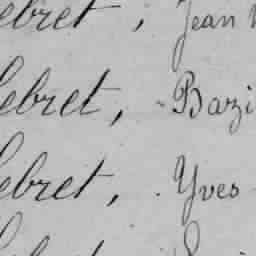 ebret, Jean
ebret, Bazi
ebret, Yves